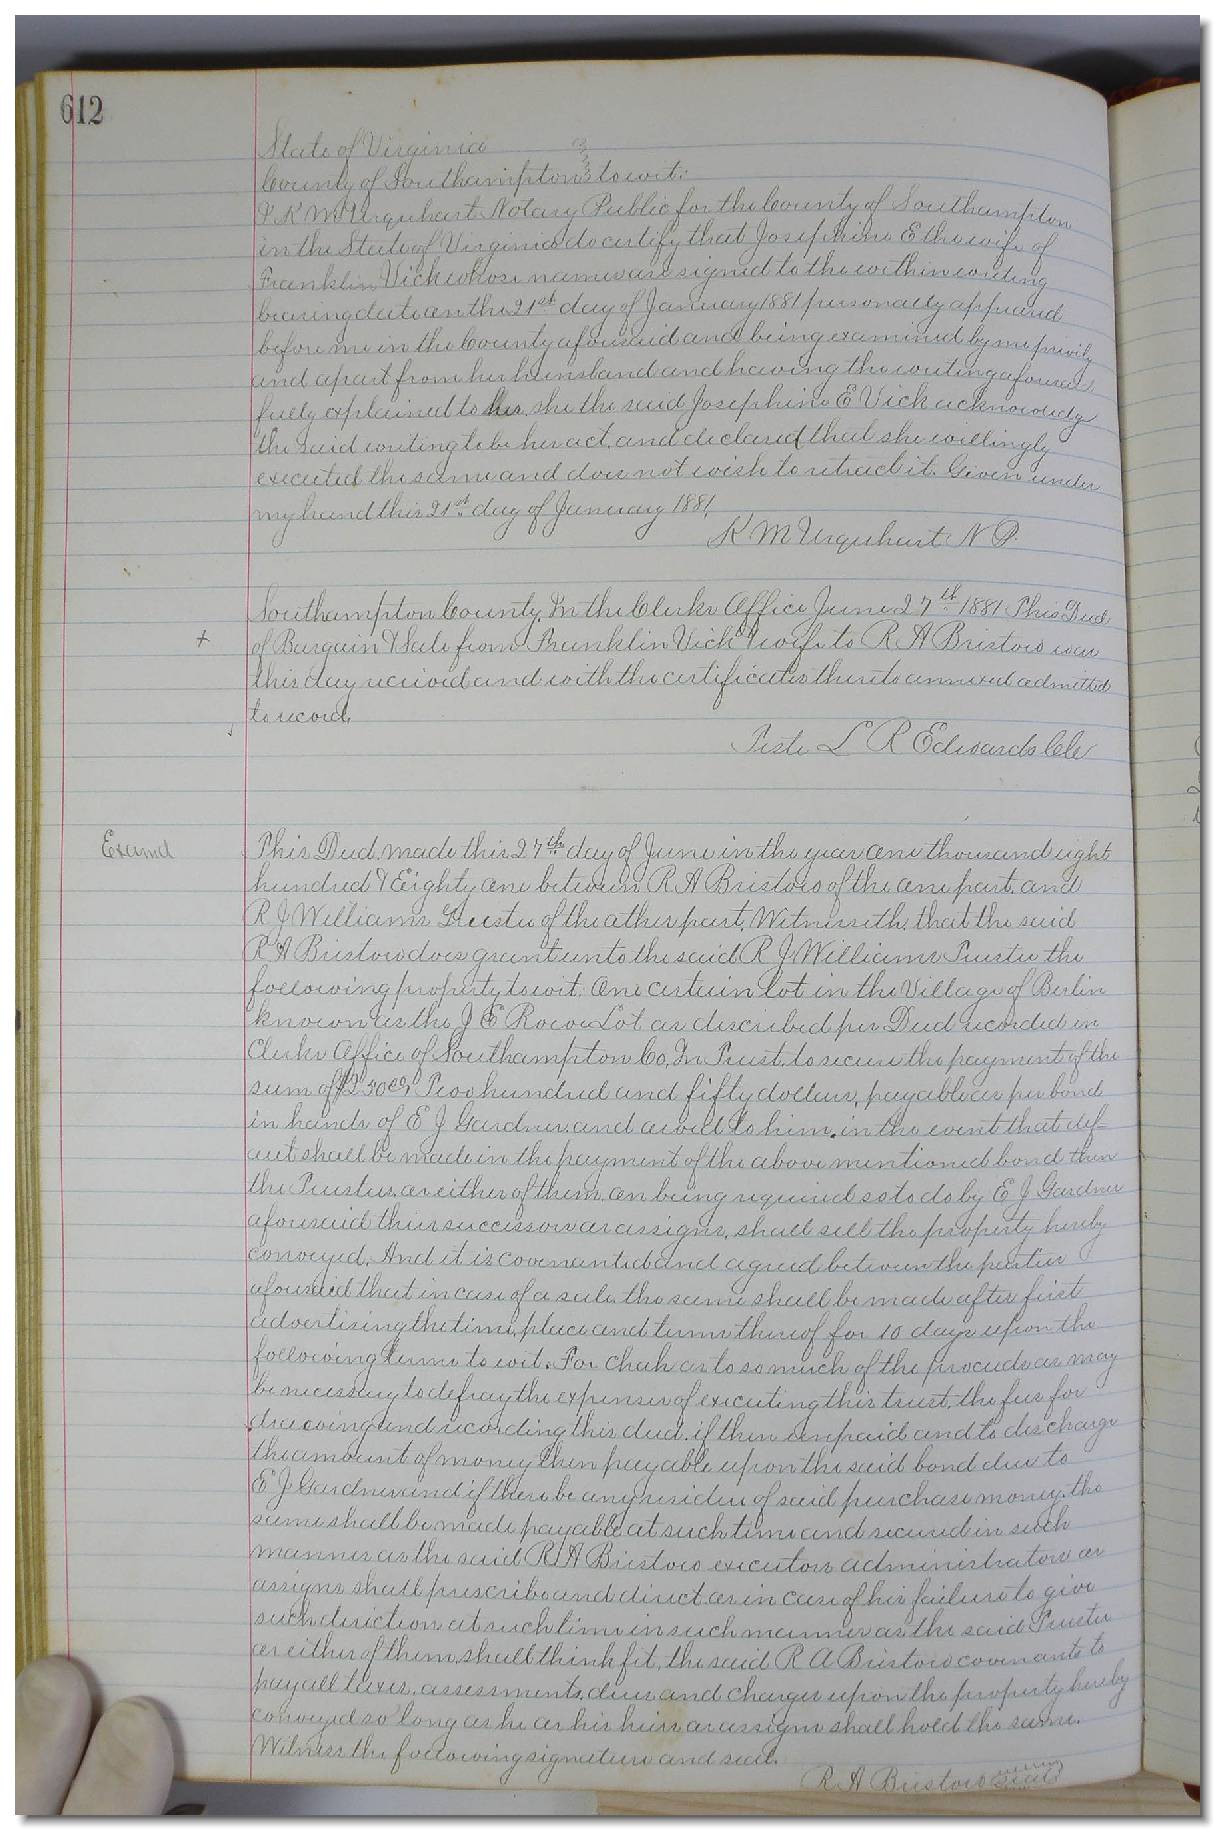 612
State of Virginia
County of Southampton to wit:
I K M Urquhart Notary Public for the County of Southampton
in the State of Virginia do certify that Josephine E the wife of
Franklin Vick whose names are signed to the within writing
bearing date on the 21st day of January 1881 personally appeared
before me in the County aforesaid and being examined by me privily
and apart from her husband and having the writing aforesaid
fully explained to her, she the said Josephine E Vick acknowledg
the said writing to be her act, and declared that she willingly
executed the same and does not wish to retract it. Given under
my hand this 21st day of January 1881.
K M Urquhart N P.
Southampton County, In the Clerks Office June 27th 1881 This Deed
+ of Bargain & Sale from Franklin Vick & wife to R A Bristow was
this day received and with the certificates thereto annexed admitted
to record,
Teste L R Edwards Clk
Examd
This Deed, made this 27th day of June in the year one thousand eight
hundred & Eighty one between R A Bristow of the one part, and
R J Williams Trustee of the other part, Witnesseth, that the said
R A Bristow does grant unto the said R J Williams Trustee the
following property to wit, One certain Lot in the Village of Berlin
known as the J E Rowe Lot as described per Deed recorded in
Clerks Office of Southampton Co, In Trust, to secure the payment of the
sum of $250 00, Two hundred and fifty dollars, payable as per bond
in hands of E J Gardner and owed to him. in the event that def-
ault shall be made in the payment of the above mentioned bond then
the Trustees, or either of them, on being required so to do by E J Gardner
aforesaid their successors or assigns, shall sell the property hereby
conveyed. And it is covenanted and agreed between the parties
aforesaid that in case of a sale the same shall be made after first
advertising the time, place and terms thereof for 10 days upon the
following terms to wit. For Chah as to so much of the proceeds as may
be necessary to defray the expenses of executing this trust, the fees for
drawing and recording this deed, if then unpaid and to discharge
the amount of money then payable upon the said bond due to
E J Gardner and if there be any residue of said purchase money, the
same shall be made payable at such time and secured in such
manner as the said R A Bristow executors administrators or
assigns shall prescribe and direct or in case of his failure to give
such direction at such time in such manner as the said Trustee
or either of them, shall think fit, the said R A Bristow covenants to
pay all taxes, assessments, dues, and charges upon the property hereby
conveyed so long as he or his heirs or assigns shall hold the same.
Witness the following signature and seal.
R A Bristow seal